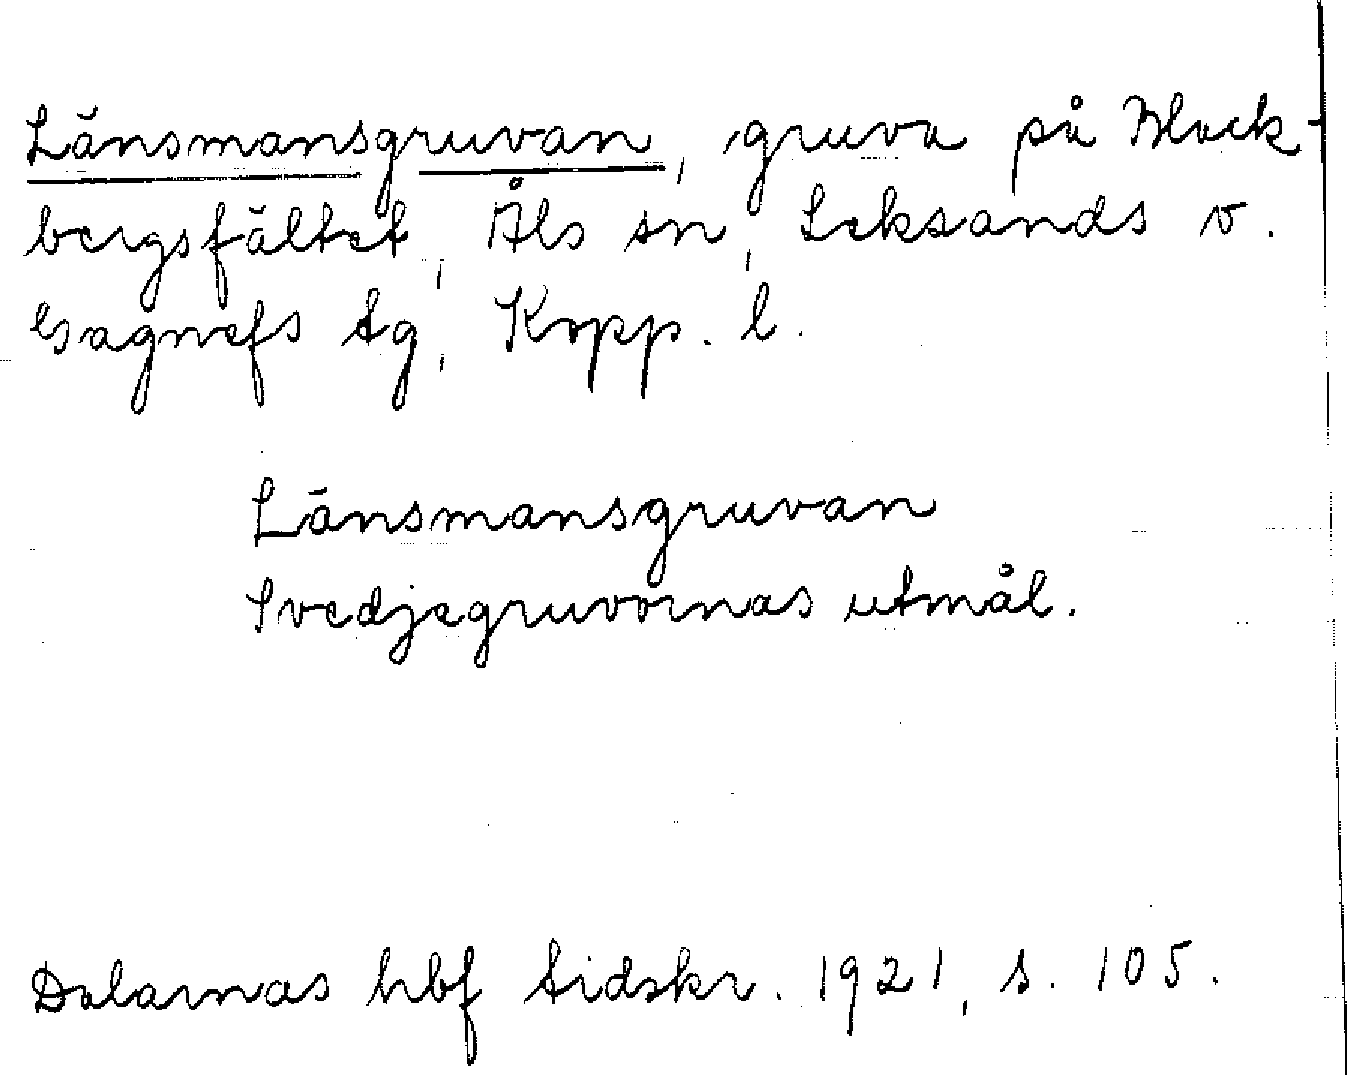 Länsmansgruvan, gruva på Block-
bergsfältet, Åls sn, Leksands o.
Gagnefs tg, Kopp. l.
Länsmansgruvan
Svedjegruvornas utmål.
Dalarnas hbf tidskr. 1921, s. 105.